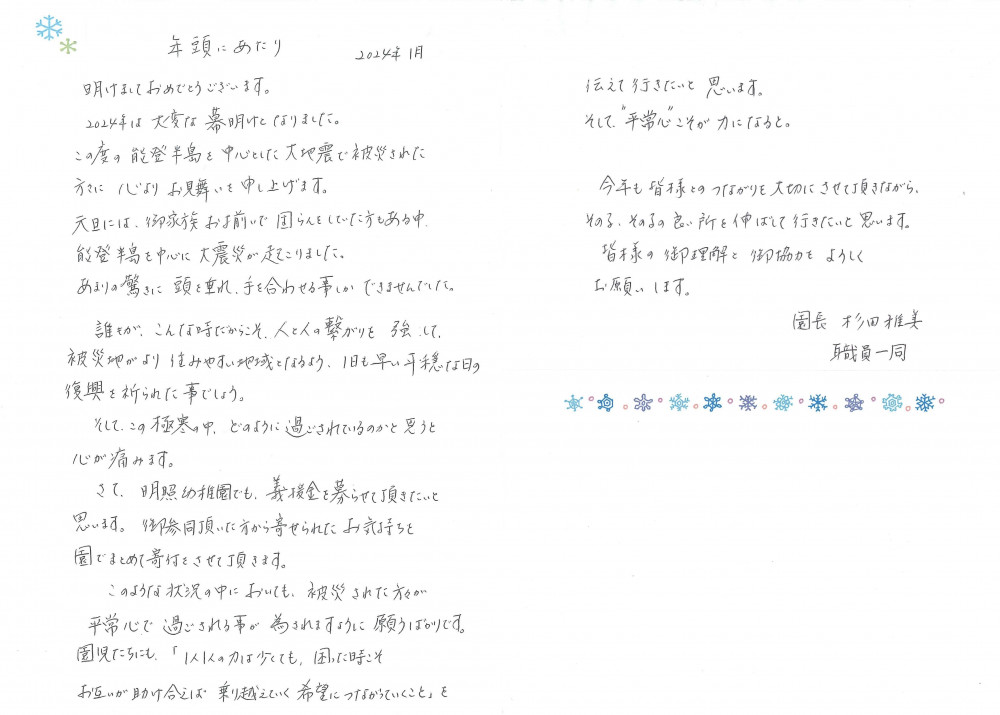 年頭にあたり
2024年1月
明けましておめでとうございます。
2024年は大変な幕明けとなりました。
この度の能登半島を中心とした大地震で被災された
方々に心よりお見舞いを申し上げます。
元旦には、御家族お揃いで団らんをしていた方もある中、
能登半島を中心に大震災が起こりました。
あまりの驚きに頭を垂れ、手を合わせる事しかできませんでした。
誰もが、こんな時だからこそ、人と人の繋がりを強くして、
被災地がより住みやすい地域となるよう、1日も早い平穏な日の
復興を祈られた事でしょう。
そして、この極寒の中、どのように過ごされているのかと思うと
心が痛みます。
さて、明照幼稚園でも、義援金を募らせて頂きたいと
思います。御参同頂いた方から寄せられたお気持ちを
園でまとめて寄付をさせて頂きます。
このような状況の中においても、被災された方々が
平常心で過ごされる事が為されますように願うばかりです。
園児たちにも、「1人1人の力は少くても、困った時こそ
お互いが助け合えば乗り越えていく希望につながっていくこと」を
伝えて行きたいと思います。
そして、"平常心"こそが力になると。
今年も皆様とのつながりを大切にさせて頂きながら、
その子、その子の良い所を伸ばして行きたいと思います。
皆様の御理解と御協力をよろしく
お願いします。
園長 杉田雅美
職員一同